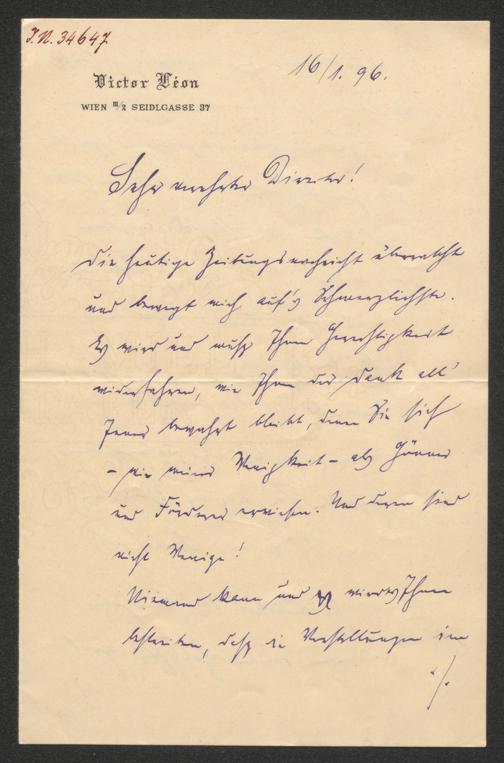 I.N. 34647
16/1. 96.
Victor Léon
WIEN III/2 SEIDLGASSE 37
Sehr verehrter Director!
Die heutige Zeitungsnachricht überrascht
und bewegt mich auf's Schmerzlichste.
Es wird und muß Ihnen Gerechtigkeit
widerfahren, wie Ihnen der Dank all'
Jener bewahrt bleibt, denen Sie sich
– wie meiner Wenigkeit – als Gönner
und Förderer erwiesen. Und deren sind
nicht Wenige!
Niemand kann und wird es Ihnen
bestreiten, daß die Vorstellungen im
./.